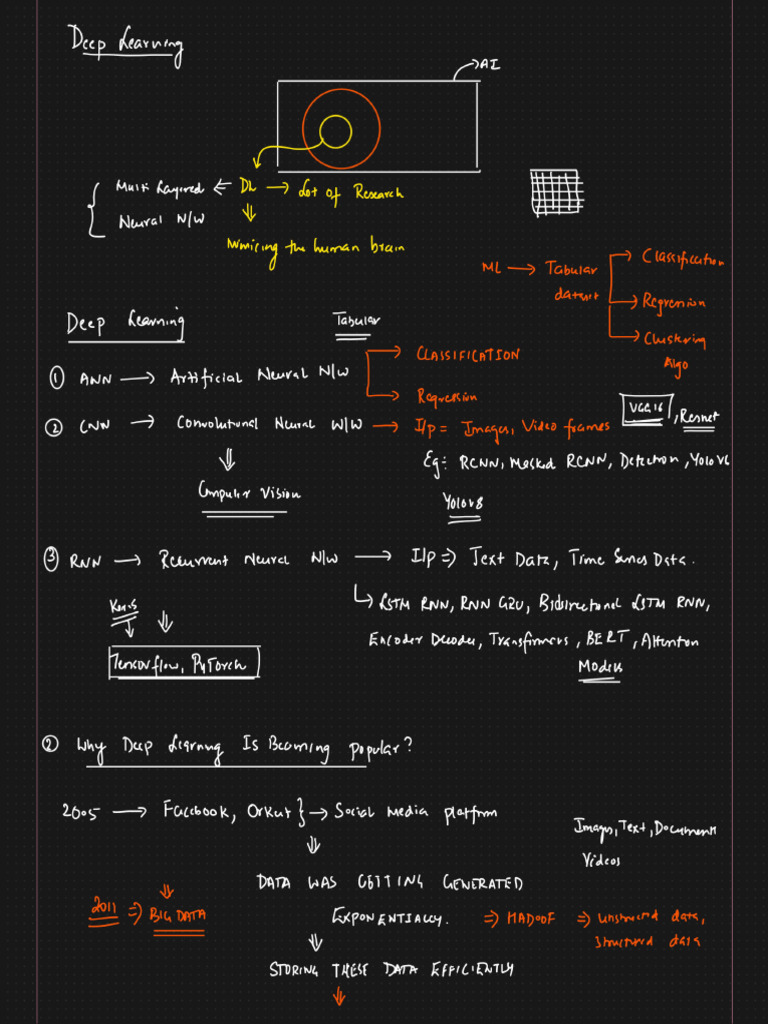 Deep Learning
→AI
Multi Layered ⇐ DL → Lot of Research
Neural N/W
Mimicing the human brain
ML → Tabular dataset
Classification
Regression
Clustering Algo
Deep Learning
Tabular
① ANN → Artificial Neural N/W
CLASSIFICATION
Regression
② CNN → Convolutional Neural N/W → I/p = Images, Video frames
VGG16, Resnet
Eg: RCNN, Masked RCNN, Detection, Yolo V6
Yolov8
Computer Vision
③ RNN → Recurrent Neural N/W → I/p ⇒ Text Data, Time Series Data.
LSTM RNN, RNN GRU, Bidirectional LSTM RNN,
Encoder Decoder, Transformers, BERT, Attention
Models
Keras
Tensorflow, PyTorch
② Why Deep Learning Is Becoming popular?
2005 → Facebook, Orkut } → Social Media platform
Images, Text, Documents
Videos
DATA WAS GETTING GENERATED
2011 ⇒ BIG DATA
EXPONENTIALLY. ⇒ HADOOP ⇒ Unstructured data,
Structured data
STORING THESE DATA EFFICIENTLY